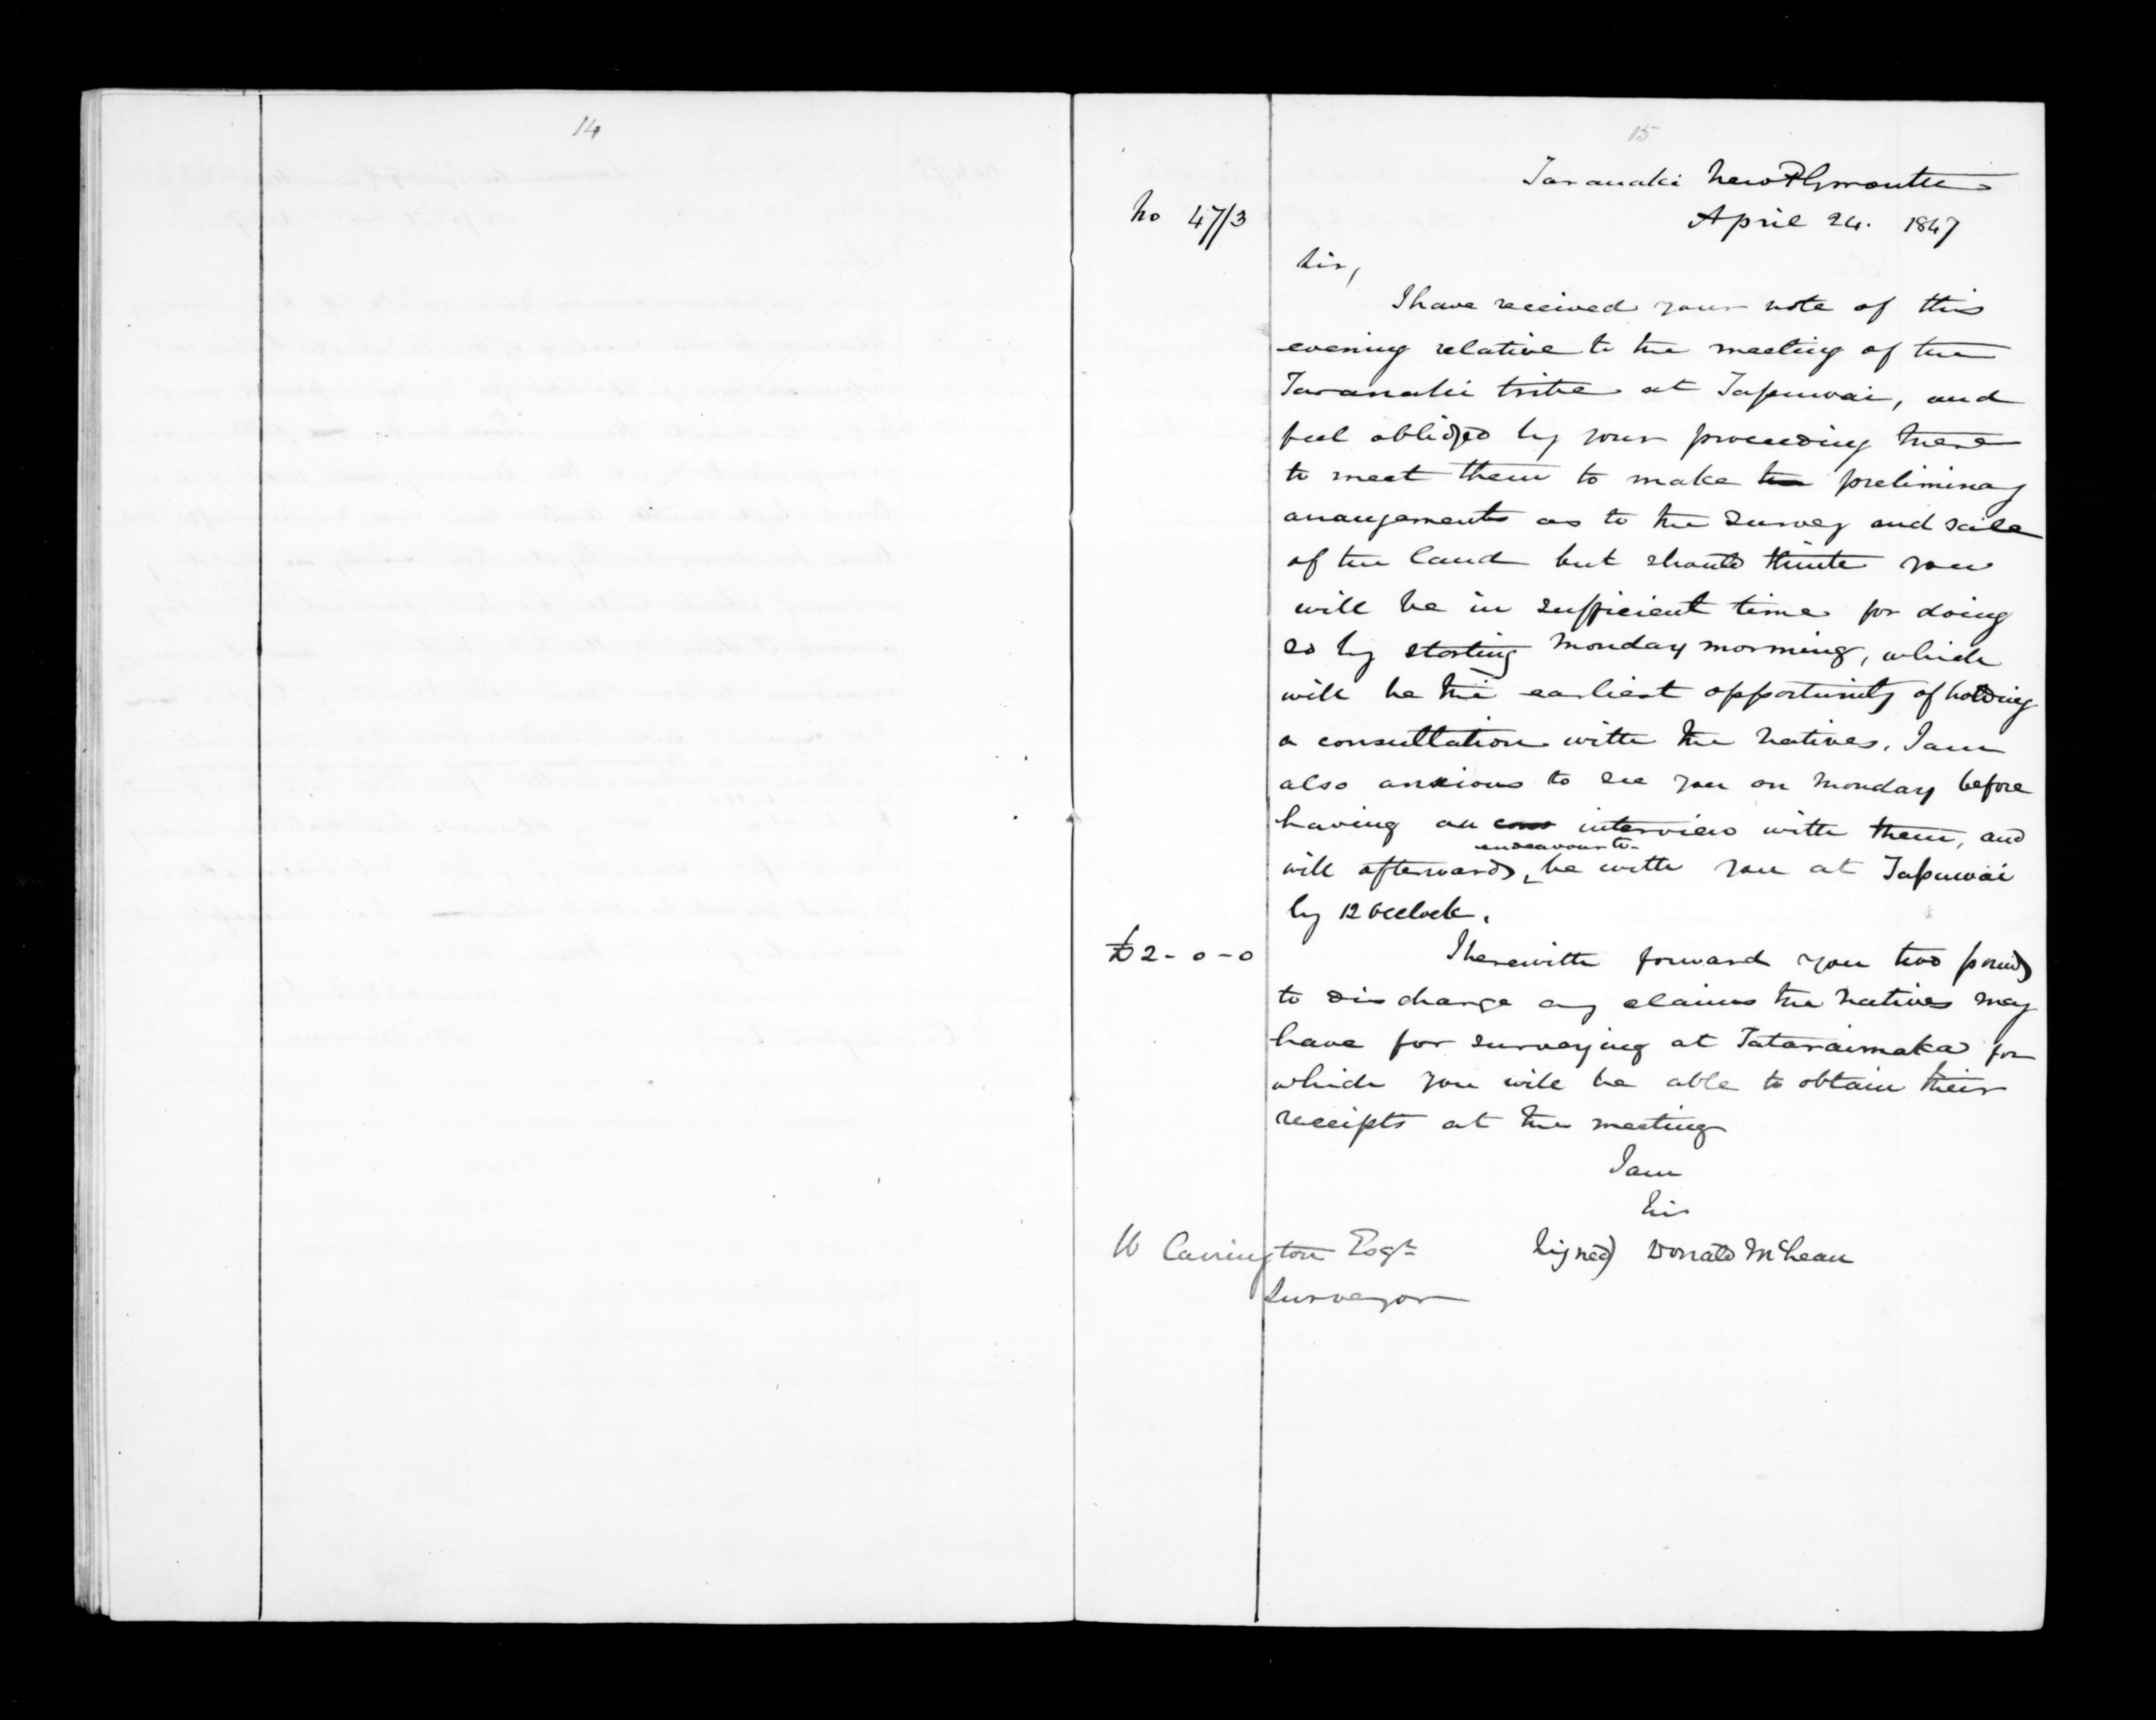 14
15
Taranaki New Plymouth
No 47/3
April 24. 1847
Sir,
I have received your note of this
evening relative to the meeting of the
Taranaki tribe at Tapuwai, and
feel obliged by your proceeding there
to meet them to make the preliminay
arrangements as to the survey and sale
of the land but should think you
will be in sufficient time for doing
so by starting Monday morning, which
will be the earliest opportunity of holding
a consultation with the Natives. I am
also anxious to see you on Monday before
having an interview with them, and
endeavour to
will afterwards, be with you at Tapuwai
by 12 Oclock.
£2-0-0
I herewith forward you two pounds
to discharge any claims the Natives may
have for surveying at Tataraimaka for
which you will be able to obtain their
receipts at the meeting
I am
Sir
Signed) Donald McLean
W Carrington Esqr
Surveyor